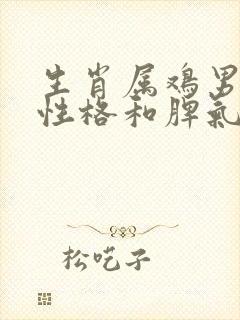 生肖属鸡男
性格和脾氣
松吃子